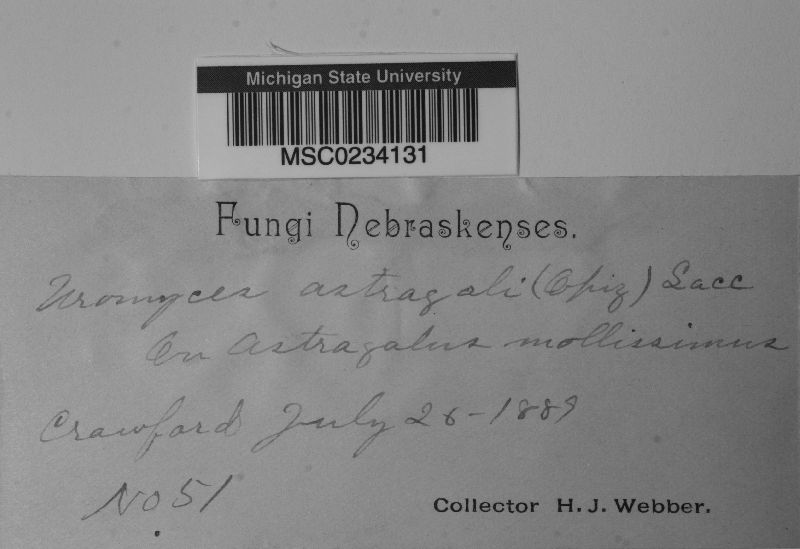 Michigan State University
MSC0234131
Fungi Nebraskenses.
Uromyces astragali (Opiz) Sacc
On Astragalus mollissimus
Crawford July 28-1889
No 51
Collector H. J. Webber.